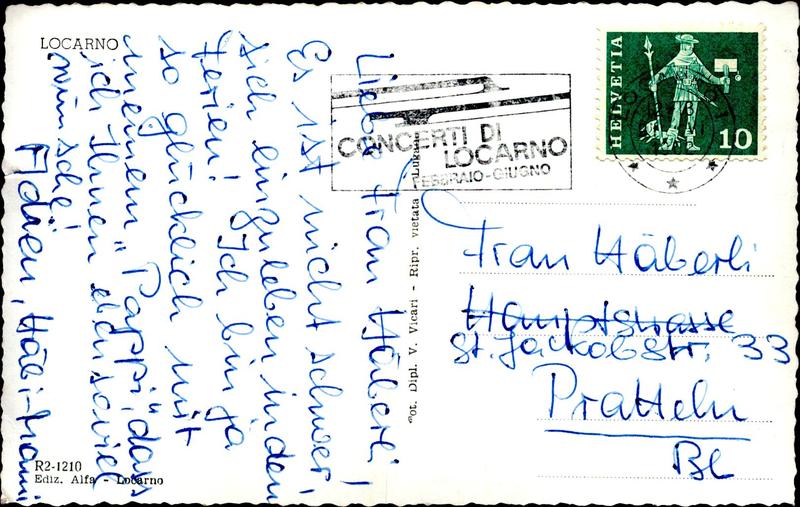 LOCARNO
Liebe Frau Häberli!
Es ist nicht schwer,
sich einzuleben in den
Ferien! Ich bin ja
so glücklich mit
meinem "Pappi", dass
ich Ihnen ebensoviel
wünsche!
Adieu, Häbi-Frau
R2-1210
Ediz. Alfa - Locarno
Fot. Dipl. V. Vicari - Ripr. vietata - Lugano
CONCERTI DI
LOCARNO
FEBBRAIO-GIUGNO
HELVETIA
10
Frau Häberli
Hauptstrasse
St. Jackobstr. 33
Pratteln
BL